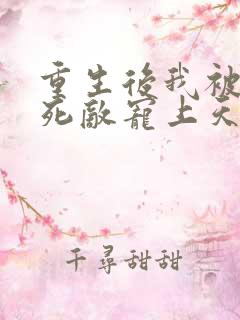 重生後我被
死敵寵上天
千尋甜甜